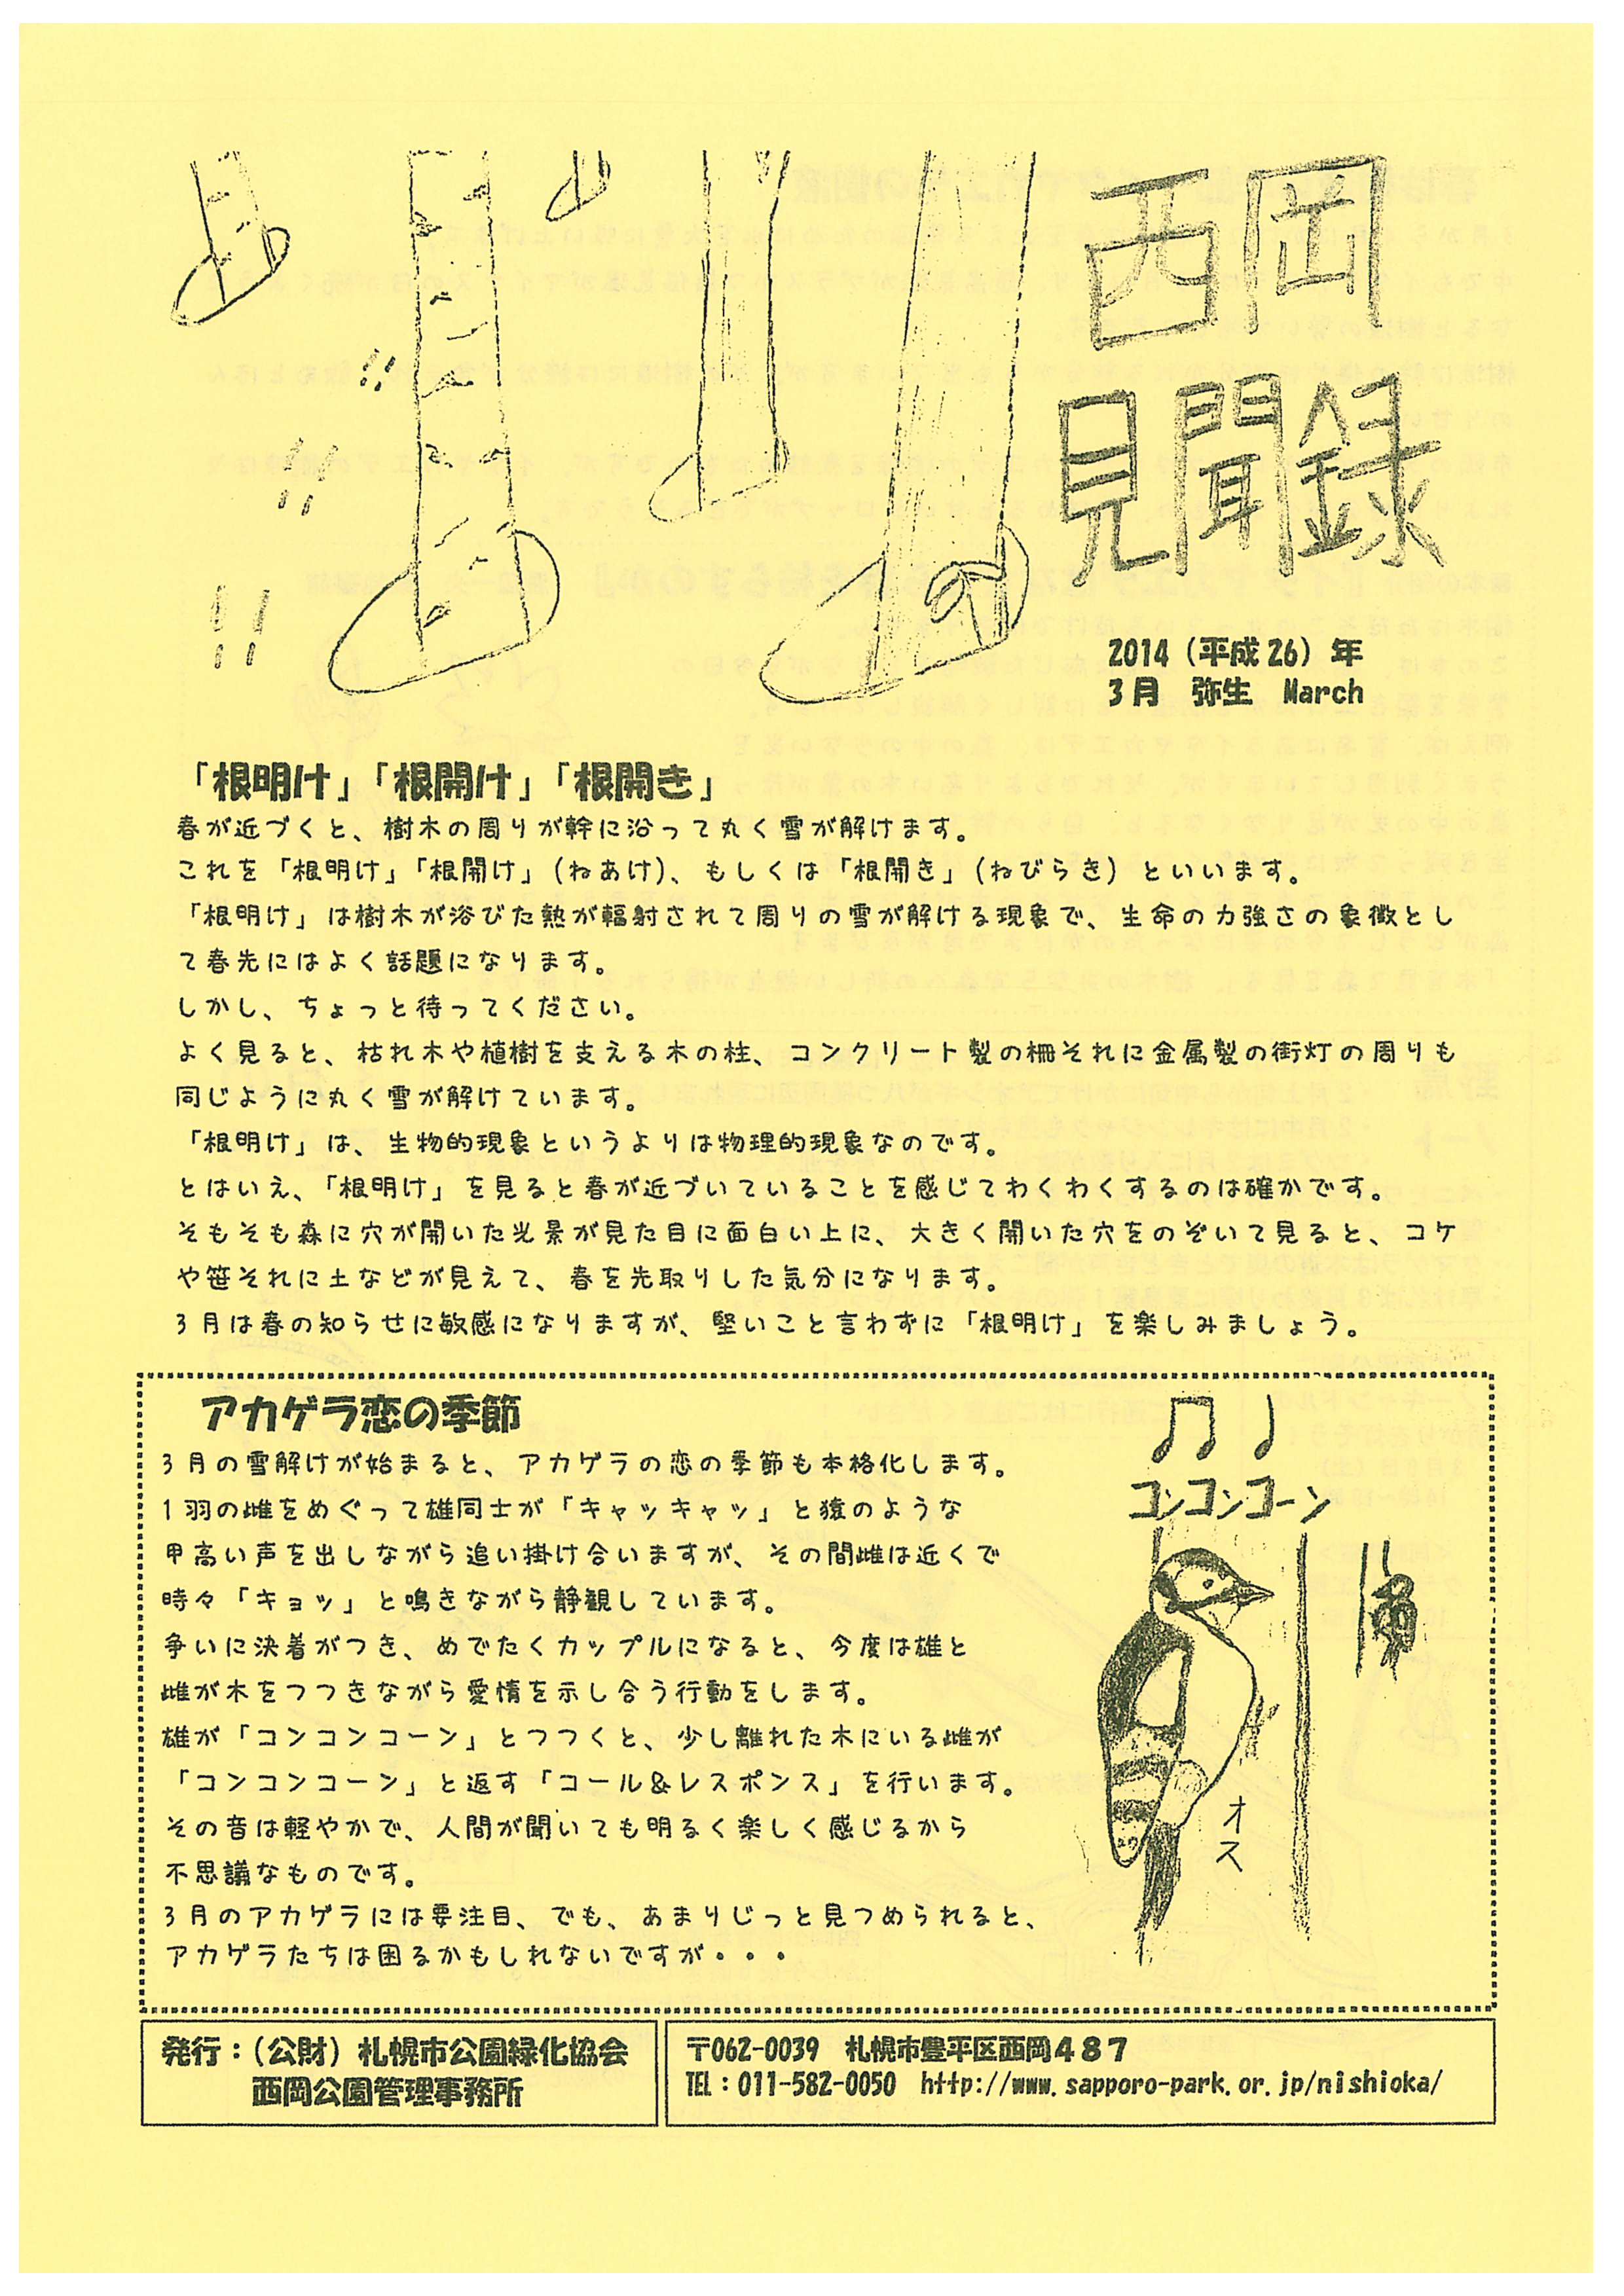 西岡
見聞録
2014（平成26）年
3月　弥生　March
「根明け」「根開け」「根開き」
春が近づくと、樹木の周りが幹に沿って丸く雪が解けます。
これを「根明け」「根開け」（ねあけ）、もしくは「根開き」（ねびらき）といいます。
「根明け」は樹木が浴びた熱が輻射されて周りの雪が解ける現象で、生命の力強さの象徴とし
て春先にはよく話題になります。
しかし、ちょっと待ってください。
よく見ると、枯れ木や植樹を支える木の柱、コンクリート製の柵それに金属製の街灯の周りも
同じように丸く雪が解けています。
「根明け」は、生物的現象というよりは物理的現象なのです。
とはいえ、「根明け」を見ると春が近づいていることを感じてわくわくするのは確かです。
そもそも森に穴が開いた光景が見た目に面白い上に、大きく開いた穴をのぞいて見ると、コケ
や笹それに土などが見えて、春を先取りした気分になります。
3月は春の知らせに敏感になりますが、堅いこと言わずに「根明け」を楽しみましょう。
アカゲラ恋の季節
3月の雪解けが始まると、アカゲラの恋の季節も本格化します。
1羽の雌をめぐって雄同士が「キャッキャッ」と猿のような
甲高い声を出しながら追い掛け合いますが、その間雌は近くで
時々「キョッ」と鳴きながら静観しています。
争いに決着がつき、めでたくカップルになると、今度は雄と
雌が木をつつきながら愛情を示し合う行動をします。
雄が「コンコンコーン」とつつくと、少し離れた木にいる雌が
「コンコンコーン」と返す「コール＆レスポンス」を行います。
その音は軽やかで、人間が聞いても明るく楽しく感じるから
不思議なものです。
3月のアカゲラには要注目、でも、あまりじっと見つめられると、
アカゲラたちは困るかもしれないですが・・・
コンコンコーン
オス
発行：（公財）札幌市公園緑化協会
西岡公園管理事務所
〒062-0039　札幌市豊平区西岡４８７
TEL：011-582-0050　http://www.sapporo-park.or.jp/nishioka/